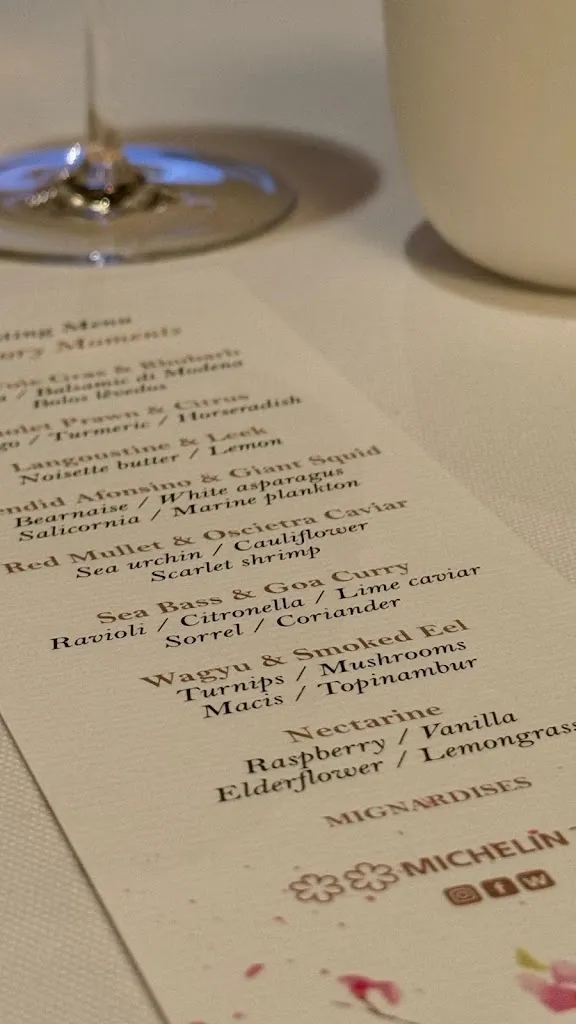 ting Menu
ory Moments
Foie Gras & Rhubarb
a / Balsamic di Modena
Bolos lêvedos
iolet Prawn & Citrus
go / Turmeric / Horseradish
Langoustine & Leek
Noisette butter / Lemon
endid Afonsino & Giant Squid
Bearnaise / White asparagus
Salicornia / Marine plankton
Red Mullet & Oscietra Caviar
Sea urchin / Cauliflower
Scarlet shrimp
Sea Bass & Goa Curry
Ravioli / Citronella / Lime caviar
Sorrel / Coriander
Wagyu & Smoked Eel
Turnips / Mushrooms
Macis / Topinambur
Nectarine
Raspberry / Vanilla
Elderflower / Lemongrass
MIGNARDISES
MICHELIN